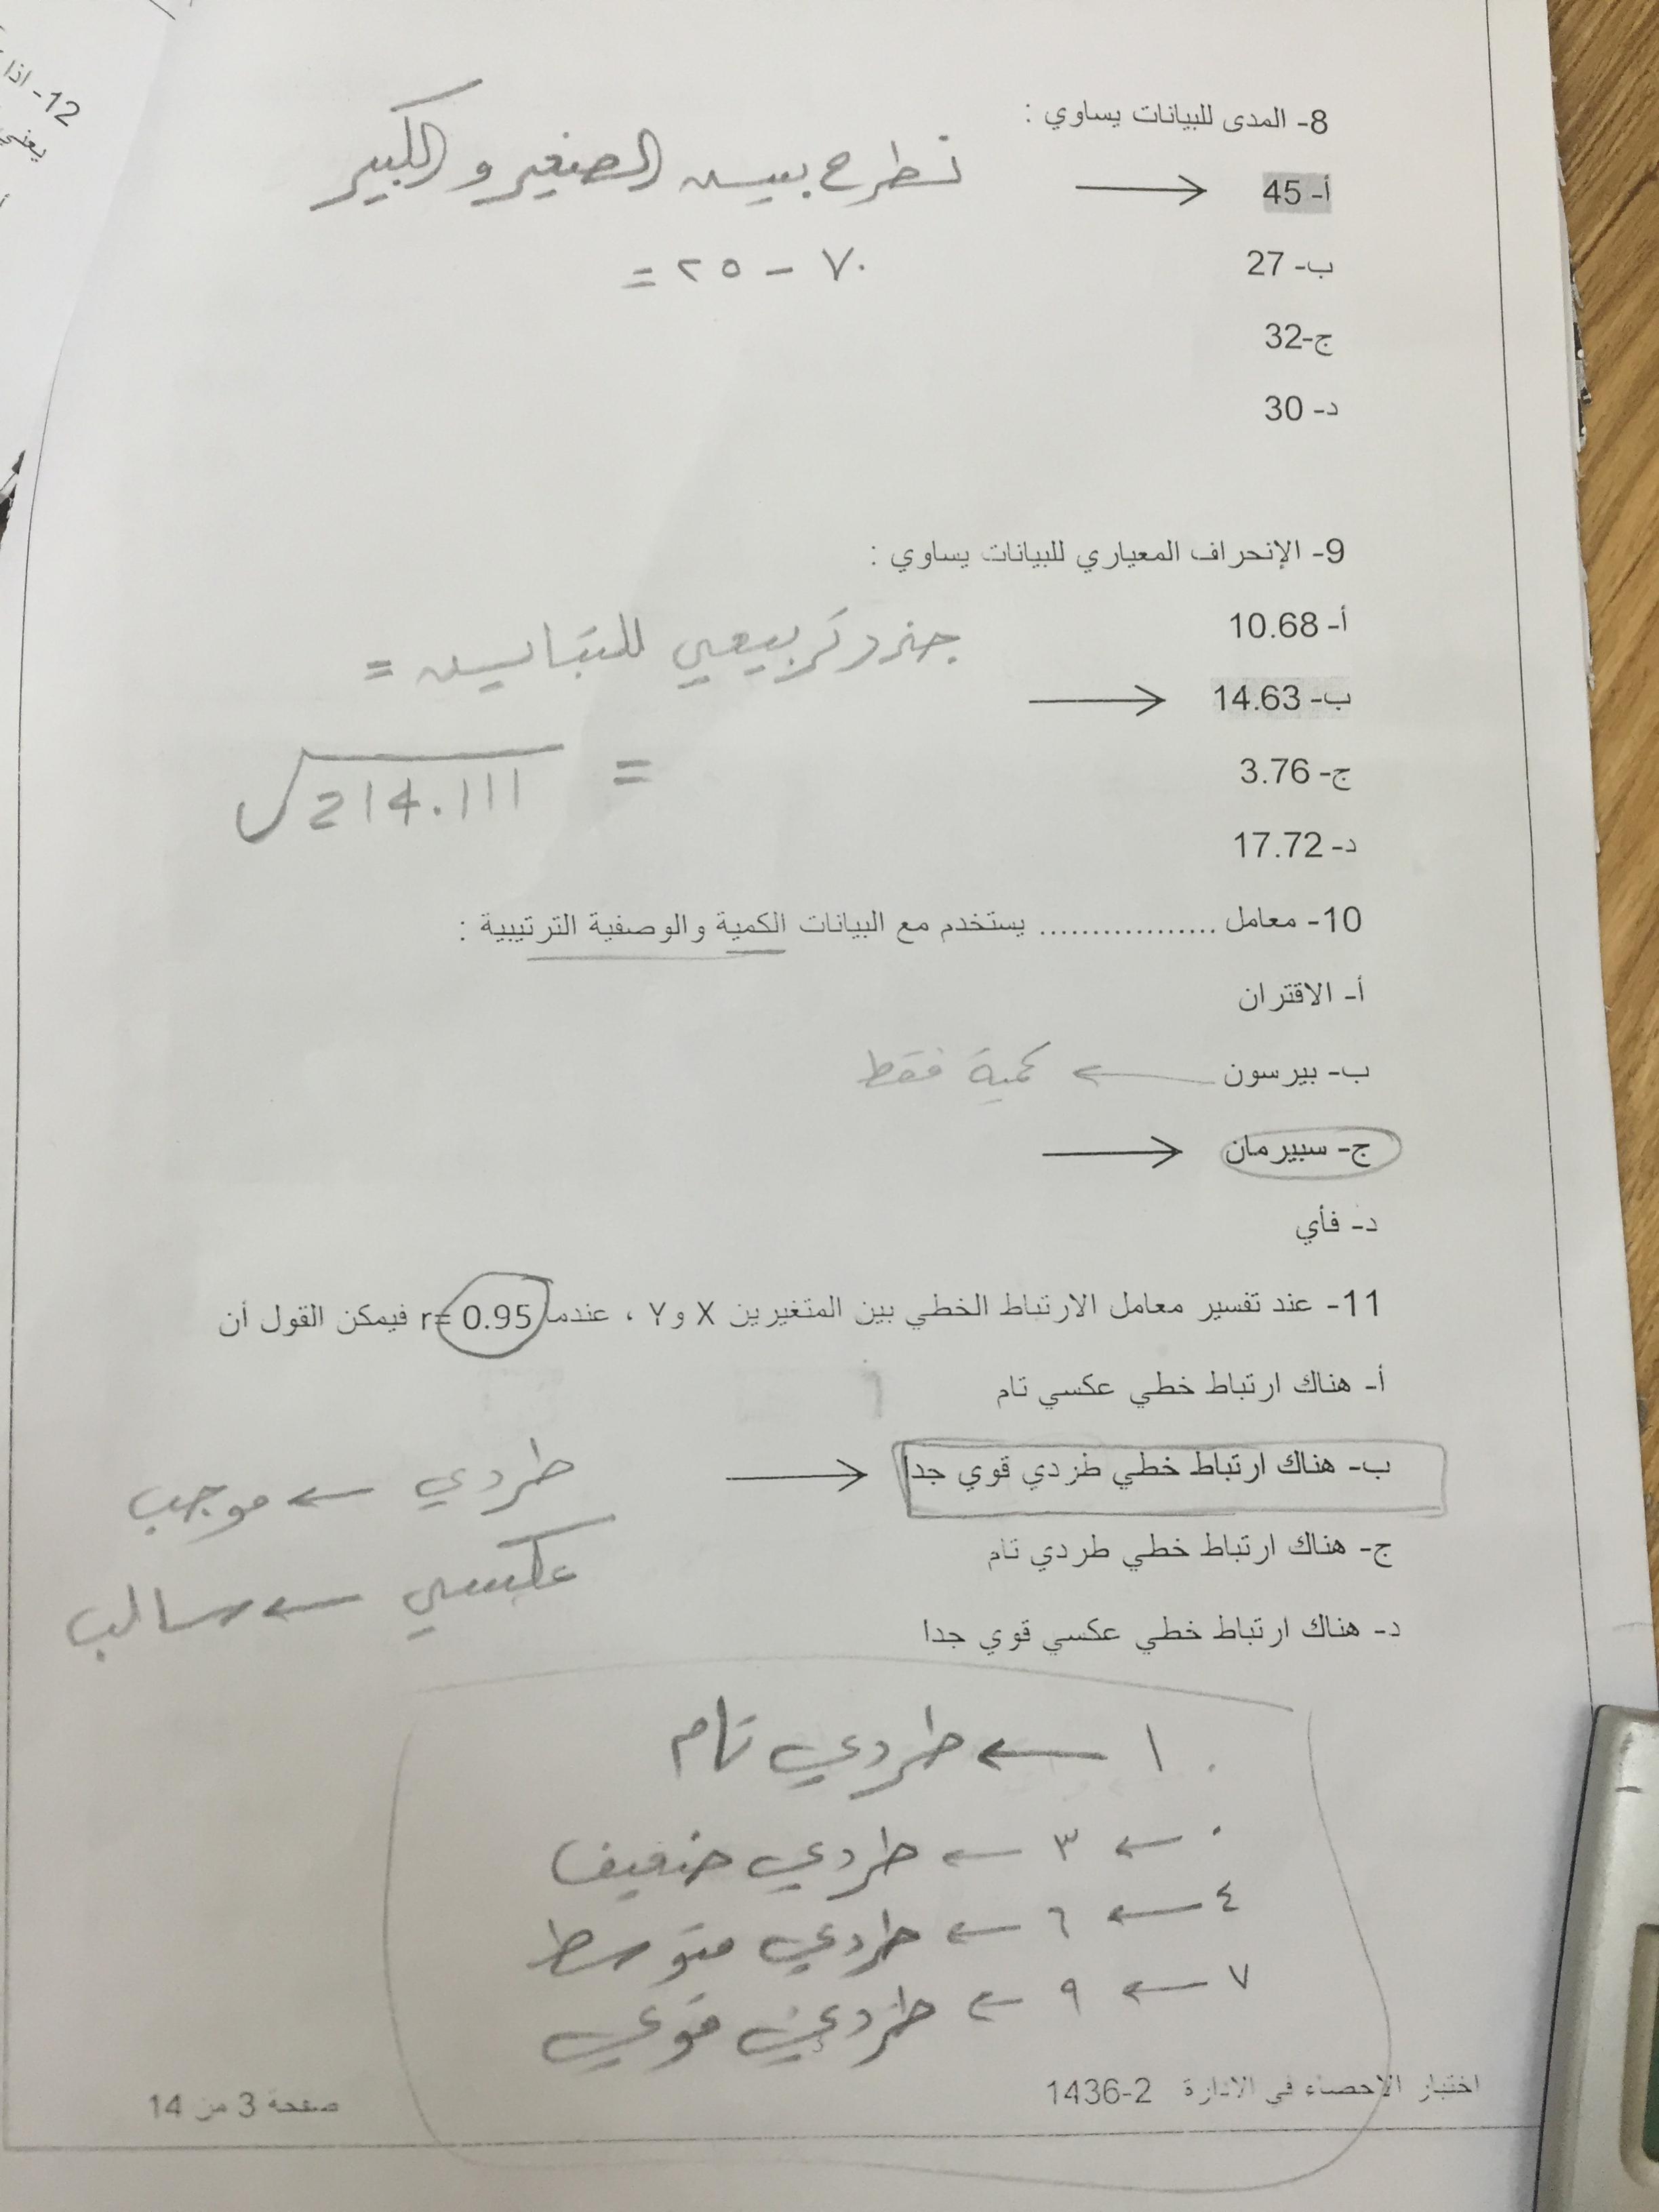 12- اذا
يعني
8- المدى للبيانات يساوي :
أ- 45
نطرح بين الصغير و الكبير
ب- 27
٧٠ - ٢٥ =
ج-32
د- 30
9- الإنحراف المعياري للبيانات يساوي :
أ- 10.68
جذر تربيعي للتباين =
ب- 14.63
ج- 3.76
= √214.111
د- 17.72
10- معامل ................. يستخدم مع البيانات الكمية والوصفية الترتيبية :
أ- الاقتران
ب- بيرسون ← كمية فقط
ج- سبيرمان
د- فأي
11- عند تفسير معامل الارتباط الخطي بين المتغيرين X و Y ، عندما r= 0.95 فيمكن القول أن
أ- هناك ارتباط خطي عكسي تام
ب- هناك ارتباط خطي طردي قوي جدا
طردي ← موجب
ج- هناك ارتباط خطي طردي تام
عكسي ← سالب
د- هناك ارتباط خطي عكسي قوي جدا
١ ← طردي تام
٠ ← ٣ ← طردي ضعيف
٤ ← ٦ ← طردي متوسط
٧ ← ٩ ← طردي قوي
اختبار الاحصاء في الادارة 2-1436
صفحة 3 من 14